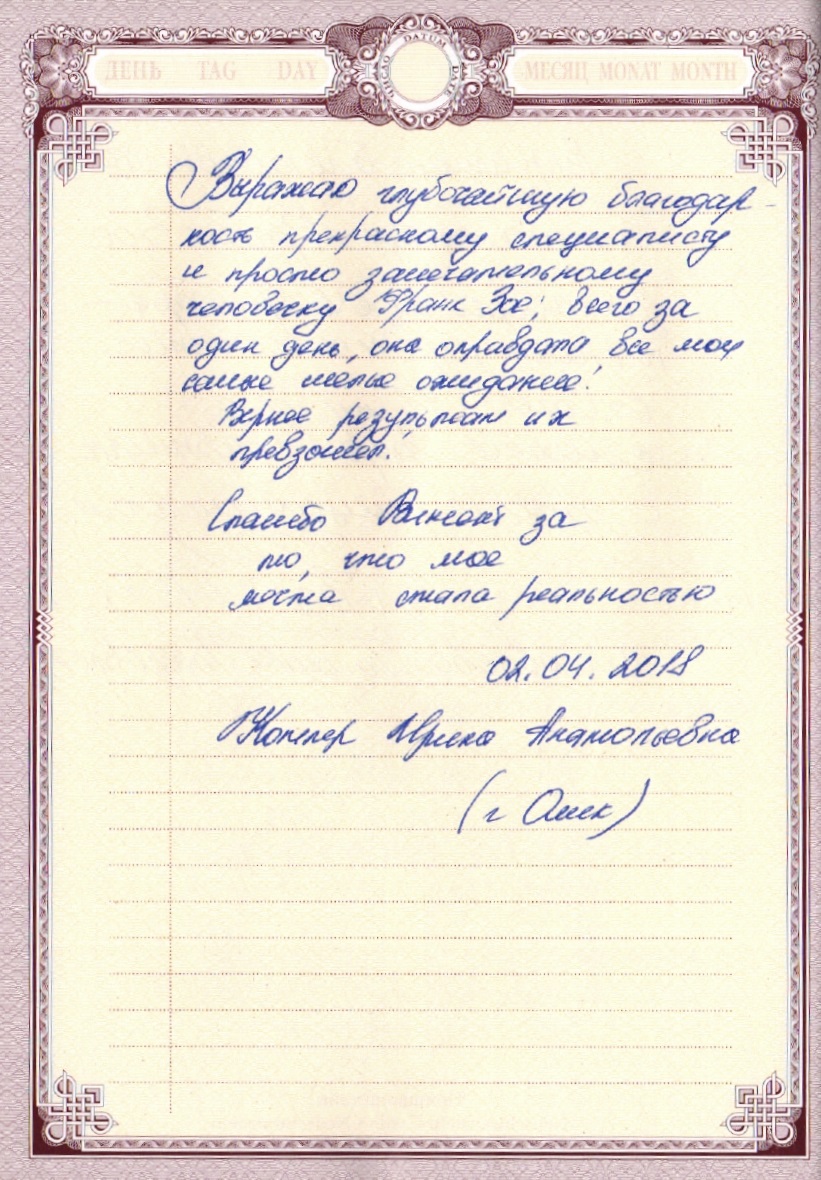 ДЕНЬ TAG DAY
DATUM
МЕСЯЦ MONAT MONTH
Выражаю глубочайшую благодар-
ность прекрасному специалисту
и просто замечательному
человечку Франк Зое; всего за
один день, она оправдала все мои
самые смелые ожидание!
Вернее результат их
превзошел!
Спасибо за
то, что мое
мечта стала реальностью
02.04.2018
Ирина Анатольевна
(г Омск)